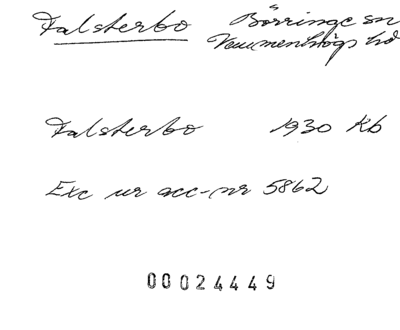 Falsterbo Börringe sn
Vemmenhögs hd
Falsterbo 1930 Kb
Exc ur acc-nr 5862
00024449